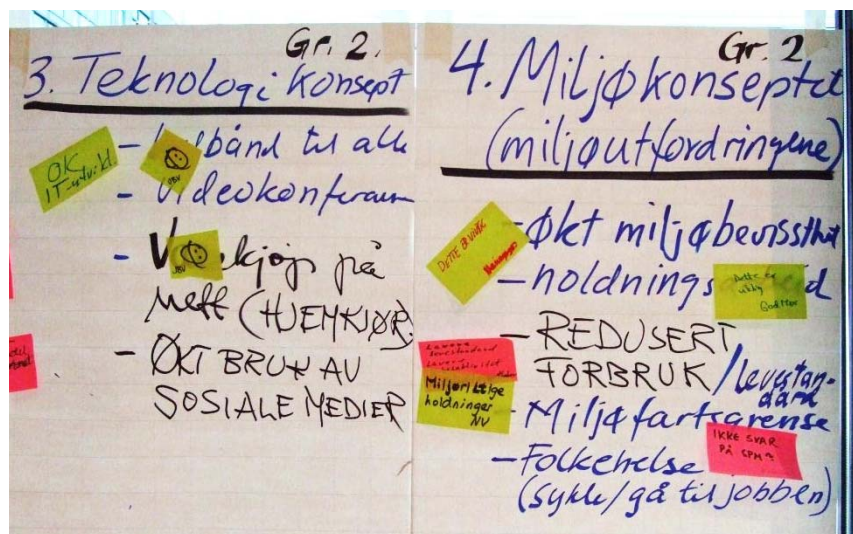 Gr. 2.
3. Teknologi konsept
OK
IT-utvikl.
til alle
- Videokonferanse
JBV
på
nett (HJEMKJØR.
- ØKT BRUK AV
SOSIALE MEDIER
Gr. 2
4. Miljøkonseptet
(miljøutfordringene)
DETTE ER VIKTIG
- Økt miljøbevissthet
- holdnings
Dette er
viktig
- REDUSERT
FORBRUK / levestan-
dard
Lavere
levestandard
Lavere
Miljøriktige
holdninger
NV
- Miljøfartsgrense
IKKE SVAR
PÅ SPM?
- Folkehelse
(sykle/gå til jobben)